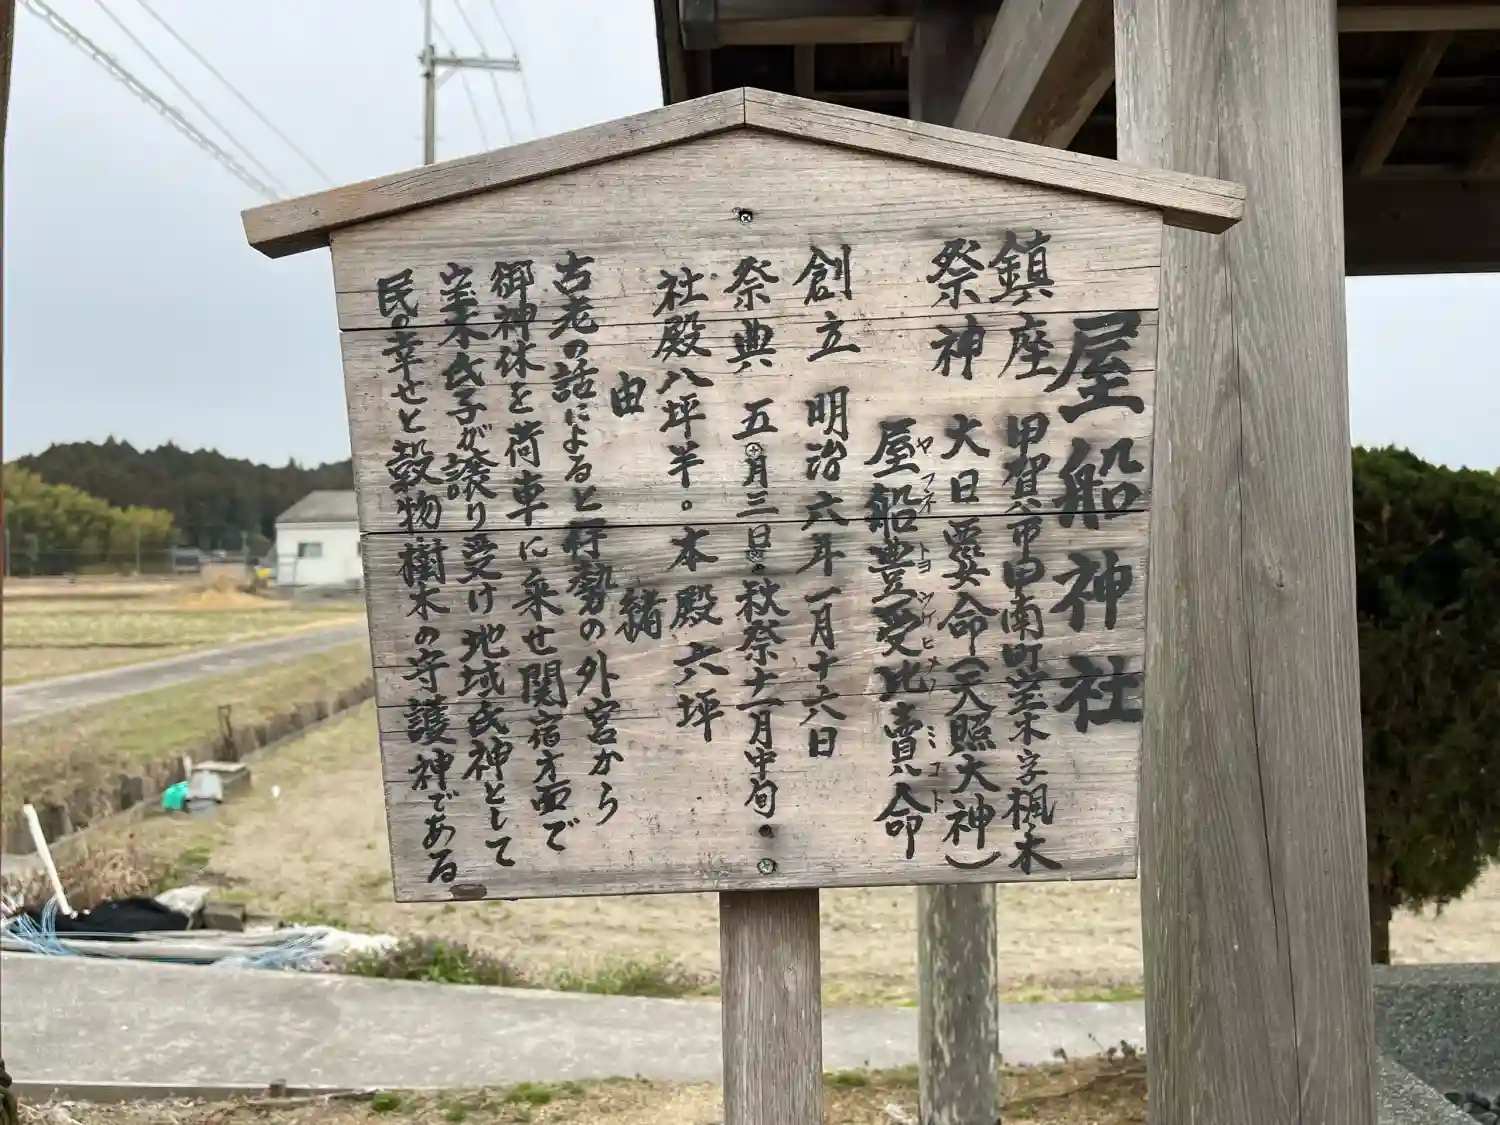 屋船神社
鎮座 甲賀市甲南町宝木字楓木
祭神 大日孁命(天照大神)
屋船豊受比賣命
ヤフネトヨウケヒメノミコト
創立 明治六年一月十六日
祭典 五月三日 秋祭十一月中旬
社殿八坪半。本殿六坪
由緒
古老の話によると伊勢の外宮から
御神体を荷車に乗せ関宿方面で
宝木氏子が譲り受け地域氏神として
民の幸せと穀物樹木の守護神である